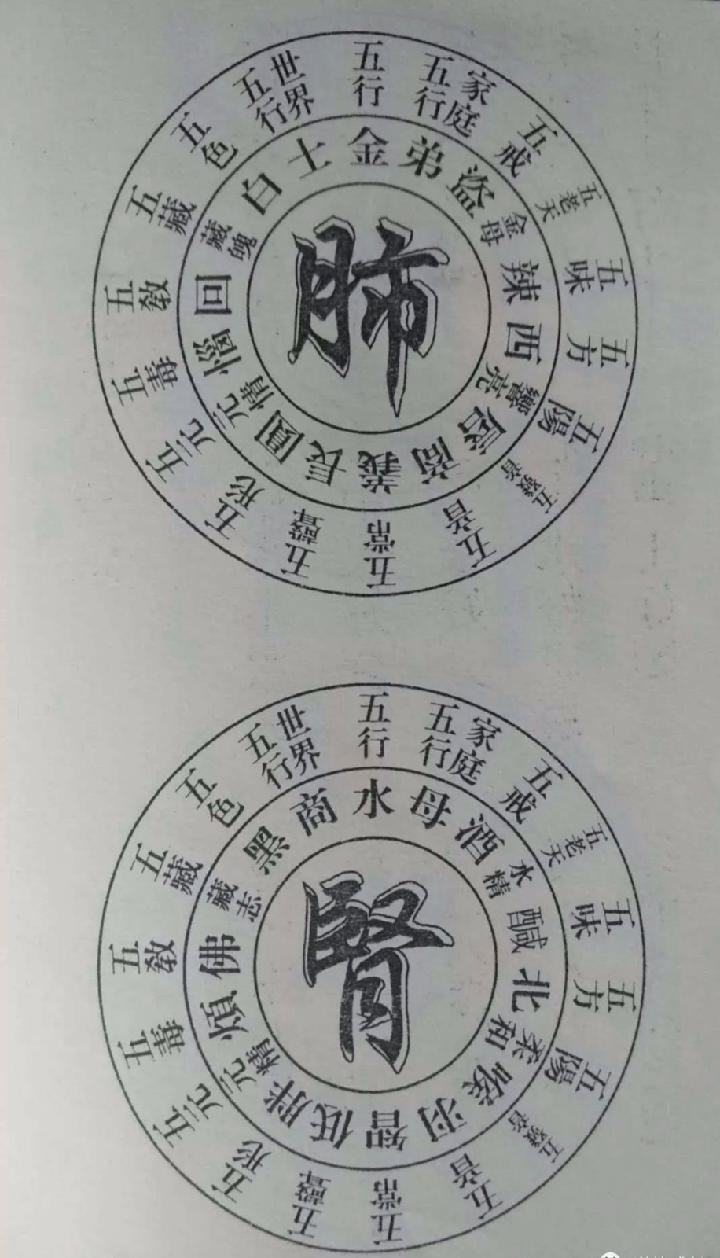 五行
家庭五行
五戒
五老天
五味
五方
五陽
五發音
五音
五常
五聲
五形
五元
五毒
五敎
五藏
五色
世界五行
金
弟
盜
金母
辣
西
響亮
唇
商
義
長
圓
元情
惱
回
藏魄
白
士
肺
五行
家庭五行
五戒
五老天
五味
五方
五陽
五發音
五音
五常
五聲
五形
五元
五毒
五敎
五藏
五色
世界五行
水
母
酒
水精
醎
北
柔和
喉
羽
智
低
胖
元精
煩
佛
藏志
黑
商
腎